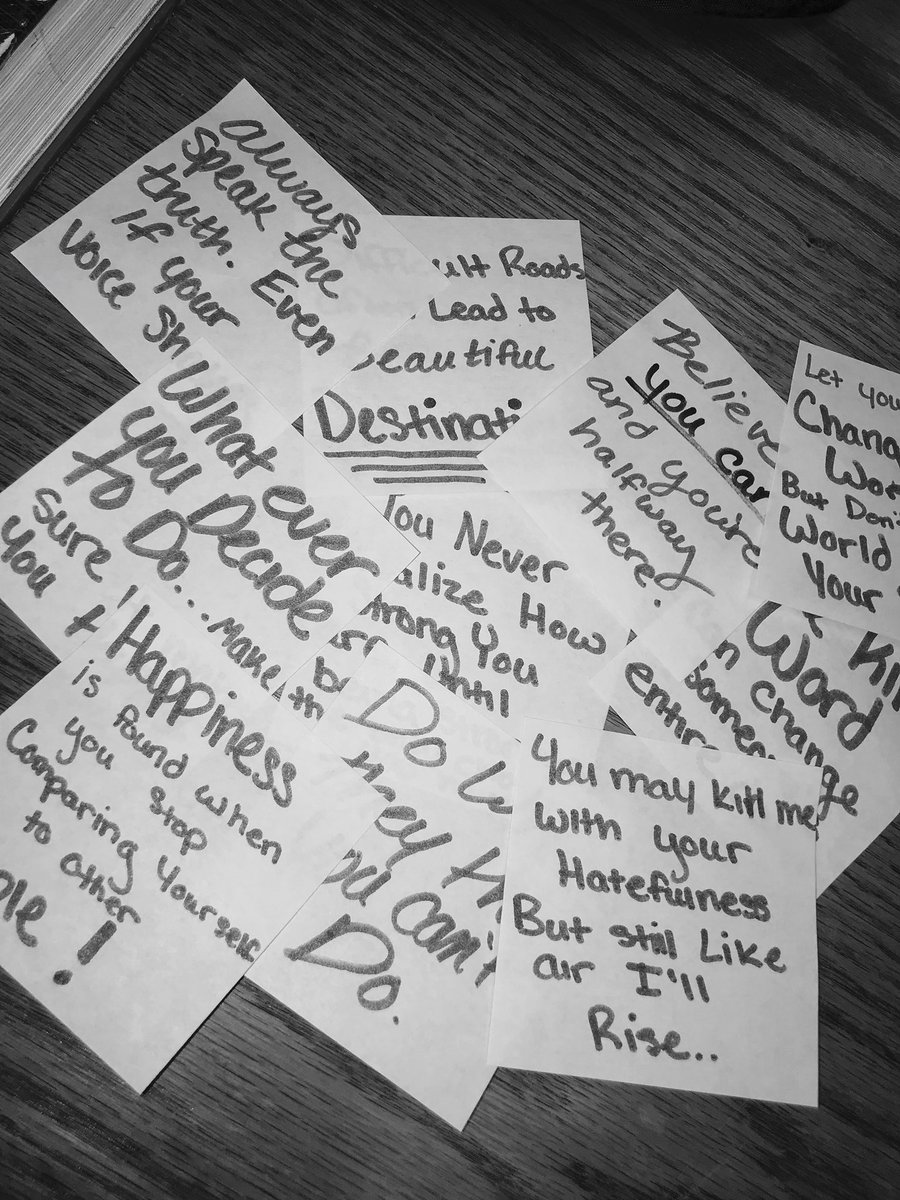 always
speak the
truth. Even
if your
voice sh
ult Roads
Lead to
Beautiful
Destinati
Believe
you can
and you're
halfway
there.
Let you
Chang
Wor
But Don't
World
Your
What ever
you Decide
to Do... Make
sure
you
You Never
alize How
trong You
until
Kill
Word
n change
some
entir
Happiness
is found when
you stop
Comparing yourself
to other
ple!
Do
they
you can't
Do.
You may kill me
with your
Hatefulness
But still Like
air I'll
Rise..